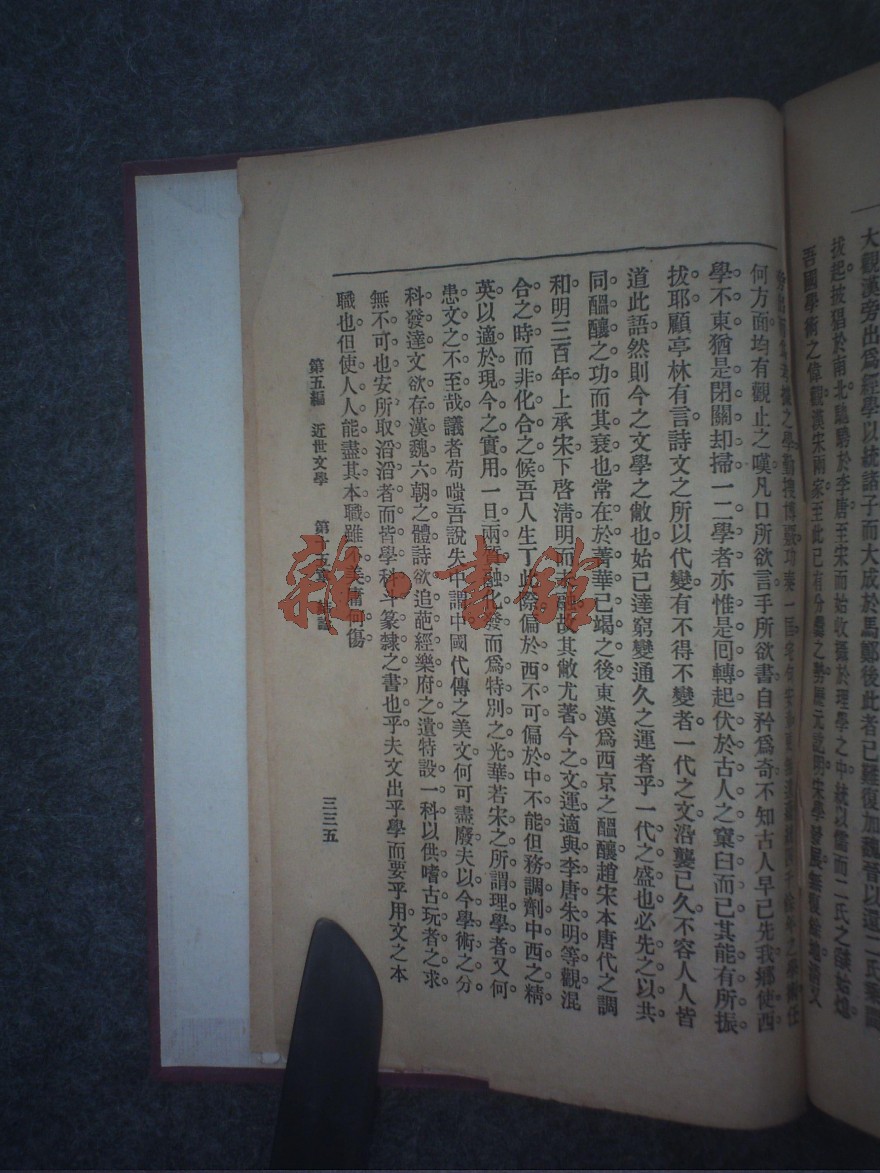 大觀漢旁出爲經學以統諸子而大成於馬鄭後此者已難復加魏晉以還二氏
拔起披猖於南北馳騁於李唐至宋而始收攝於理學之中統以儒而二氏之
吾國學術之偉觀漢宋兩家至此已有分
何方面均有觀止之嘆凡口所欲言手所欲書自矜爲奇不知古人早已先我鄉使西
學不東猶是閉關却掃一二學者亦惟是囘轉起伏於古人之窠臼而已其能有所振
拔耶顧亭林有言詩文之所以代變有不得不變者一代之文沿襲已久不容人人皆
道此語然則今之文學之敝也始已達窮變通久之運者乎一代之盛也必先之以共
同醞釀之功而其衰也常在於菁華已竭之後東漢爲西京之醞釀趙宋本唐代之調
和明三百年上承宋下啓淸明而未融故其敝尤著今之文運適與李唐朱明等觀混
合之時而非化合之候吾人生丁此際偏於西不可偏於中不能但務調劑中西之精
英以適於現今之實用一旦兩質融化發而爲特別之光華若宋之所謂理學者又何
患文之不至哉議者苟嗤吾說失中謂中國代傳之美文何可盡廢夫以今學術之分
科發達文欲存漢魏六朝之體詩欲追葩經樂府之遺特設一科以供嗜古玩者之求
無不可也安所取滔滔者而皆學科斗篆隸之書也乎夫文出乎學而要乎用文之本
職也但使人人能盡其本職雖不美庸何傷
第五編 近世文學 第十五章 結論 三三五
雜·書館